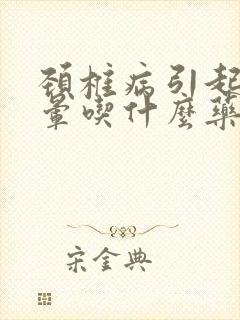 頚椎病引起
暈喫什麼藥
宋金典